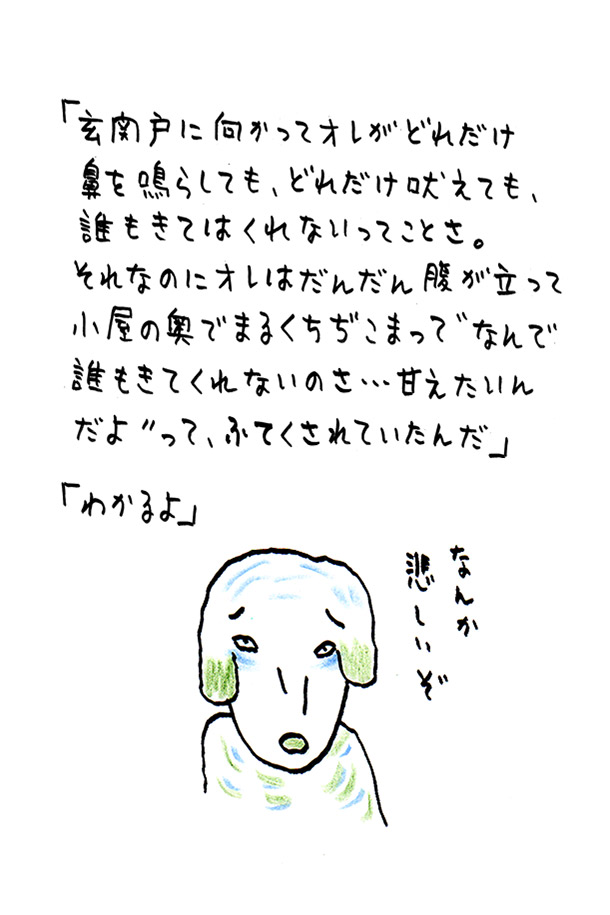 「玄関戸に向かってオレがどれだけ
鼻を鳴らしても、どれだけ吠えても、
誰もきてはくれないってことさ。
それなのにオレはだんだん腹が立って
小屋の奥でまるくちぢこまって〝なんで
誰もきてくれないのさ…甘えたいん
だよ〟って、ふてくされていたんだ」
「わかるよ」
なんか
悲しいぞ